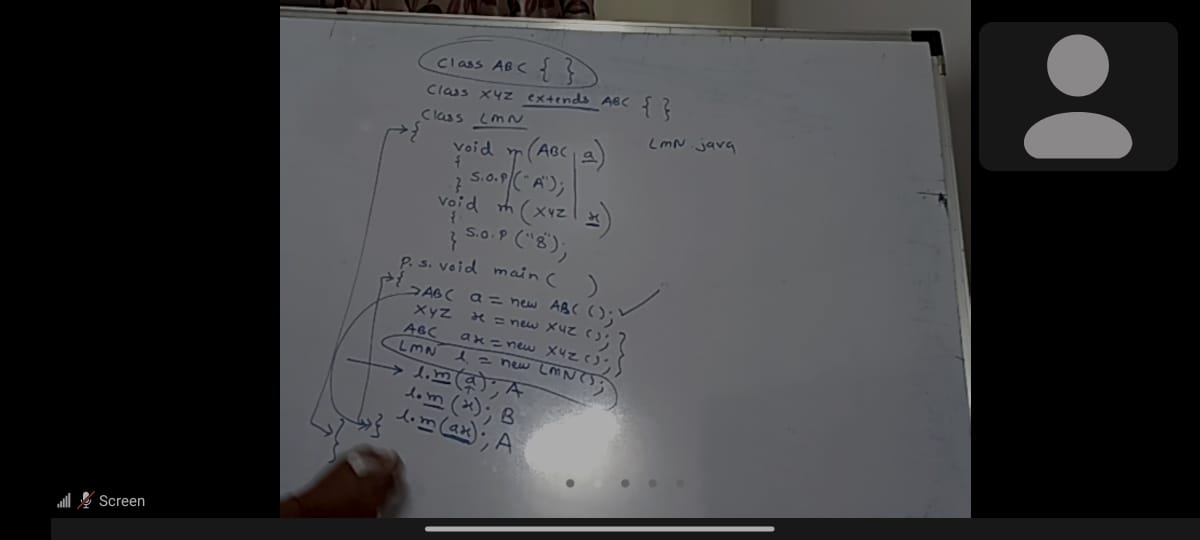 class ABC { }
class XYZ extends ABC { }
class LMN
{
LMN.java
void m(ABC a)
{
} S.O.P("A");
void m(XYZ x)
{
} S.O.P("B");
P.S. void main( )
{
ABC a = new ABC();
XYZ x = new XYZ();
ABC ax = new XYZ();
LMN l = new LMN();
l.m(a); A
l.m(x); B
l.m(ax); A
}
}
Screen